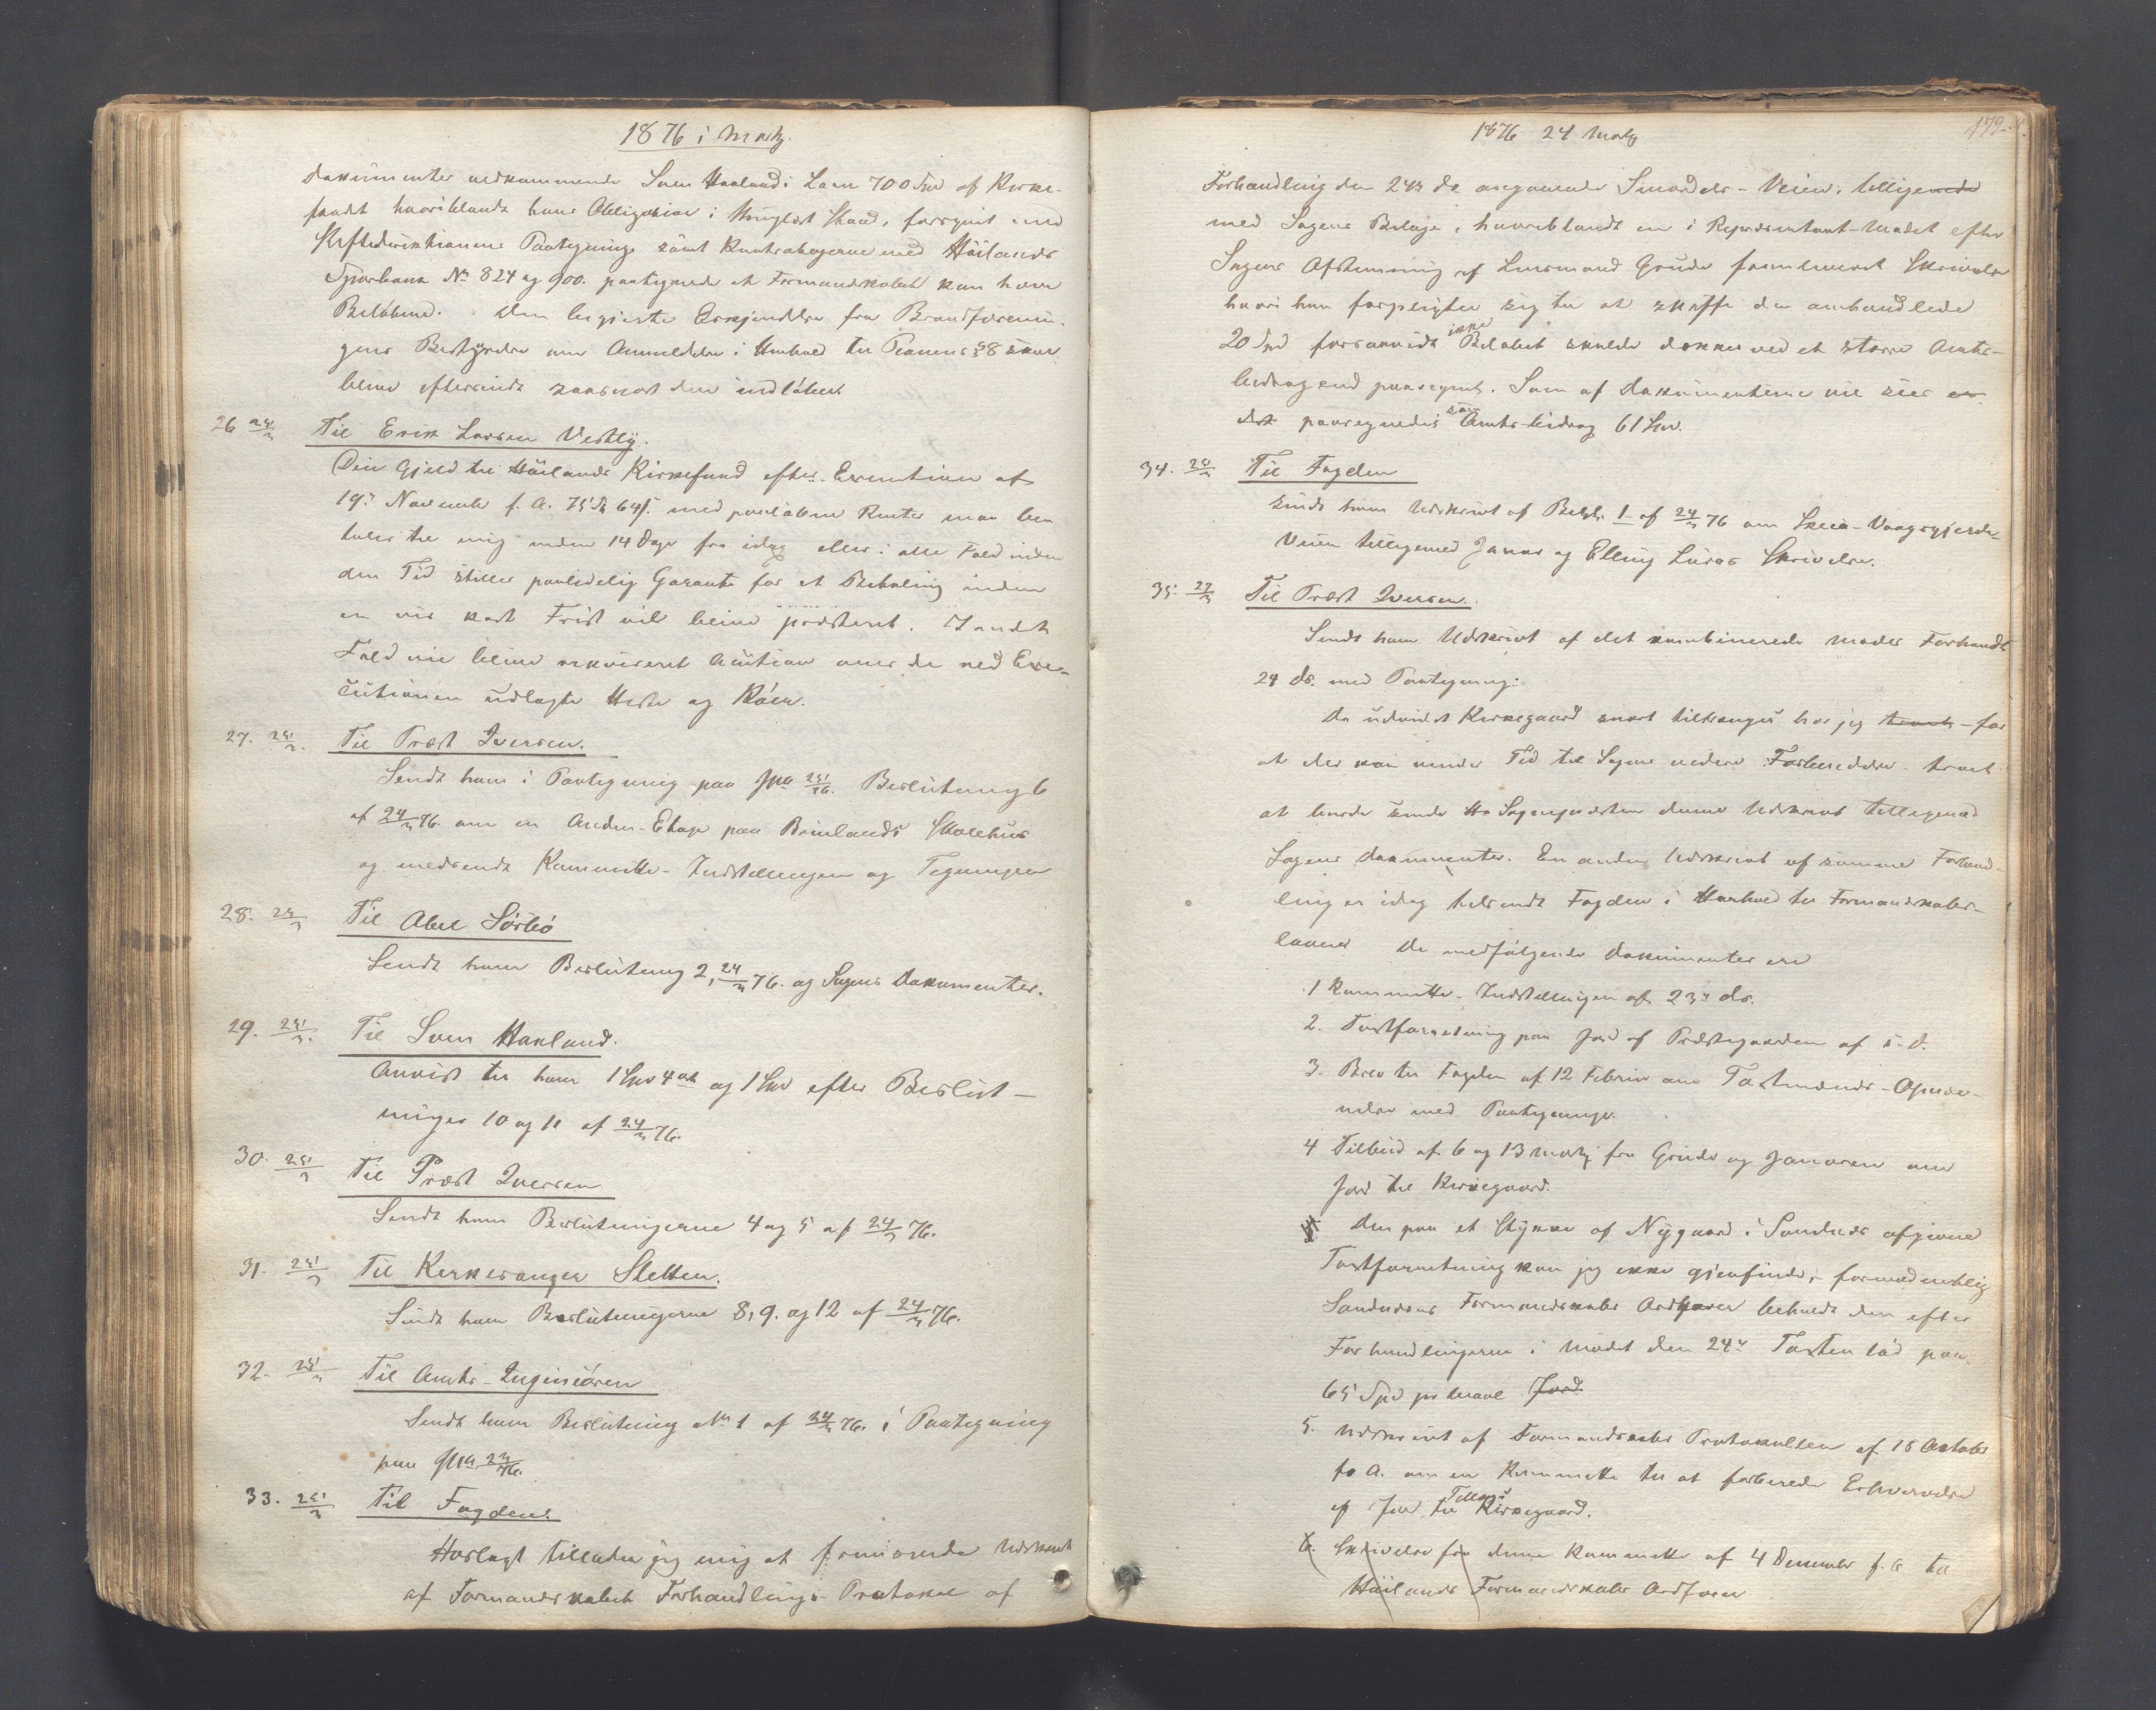 1876 i Marts.
Dokumenter vedkommende Sven Haalands Laan 700 Spd af Kirke-
fondet hvoriblandt hans Obligation i thinglæst Stand, forsynet med
Stiftsdirektionens Paategning samt Kontrabøgerne med Høilands
Sparebank No 824 og 900. paategnede at Formandskabet kan hæve
Beløbene. Den begjerte Erkjendelse fra Brandforenin-
gens Bestyrelse om Anmeldelse i Henhold til Planens § 8 skal
blive eftersendt saasnart den indløber.
26 25/3 Til Erik Larsen Vestly.
Din Gjeld til Høilands Kirkefond efter Execution af
19de November f. A. 75 D 64 s. med paaløbne Renter maa be-
tales til mig inden 14 Dage fra idag eller i alle Fald inden
den Tid stilles paalidelig Garanti for at Betaling inden
en vis kort Frist vil blive præsteret. I andet
Fald vil blive rekvireret Auktion over de ved Exe-
cutionen udlagte Heste og Køer.
27. 25/3. Til Præst Iversen.
Sendt ham i Paategning paa 25/76. Beslutning 6
af 24/3 76. om en Anden-Etage paa Brualands Skolehus
og medsendt Kommitte-Indstillingen og Tegninger
28. 25/3 Til Abel Sørbø
Sendt ham Beslutning 2, 24/3 76. og Sagens Dokumenter.
29. 25/3. Til Sven Haaland.
Anvist til ham 1 Spd 4 ort og 1 Spd efter Beslut-
ninger 10 og 11 af 24/3 76.
30. 25/3 Til Præst Iversen
Sendt ham Beslutningerne 4 og 5 af 24/3 76.
31. 25/3 Til Kirkesanger Sletten.
Sendt ham Beslutningerne 8, 9. og 12 af 24/3 76.
32. 25/3 Til Amts-Ingeniøren
Sendt ham Beslutning No 1 af 24/3 76. i Paategning
paa
33. 25/3 Til Fogden.
Hoslagt tillader jeg mig at fremsende Udskrivt
af Formandskabets Forhandlings-Protokol af
1876 24 Marts
179.
Forhandling den 24de ds angaaende Veien, tilligemed
med Sagens Bilage, hvoriblandt en i Repræsentant-Mødet efter
Sagens Afstemning af Lensmand Grude fremleveret Skrivelse
hvori han forpligter sig til at skaffe de omhandlede
20 Spd forsaavidt ikke Beløbet skulde dækkes ved et større Amts-
bidrag end paaregnet. Som af Dokumenterne vil sees er
det paaregnedes som Amts-bidrag 61 Spd.
34. 25/3 Til Fogden
Sendt ham Udskrivt af Beslt. 1 af 24/3 76 om Skeie-Vaagsgjerde-
Veien tilligemed Janas og Elling Luras Skrivelse.
35. 27/3 Til Præst Iversen.
Sendt ham Udskrivt af det kombinerede Mødes Forhandl
24 ds. med Paategning:
Da udvidet Kirkegaard snart tiltrænges har jeg troet - for
at der kan vindes Tid til Sagens videre Forberedelse - troet
at burde sende Hr Sognepræsten denne Udskrivt tilligemed
Sagens Dokumenter. En anden Udskrivt af samme Forhand-
ling er idag tilsendt Fogden i Henhold til Formandskabs-
loven. De medfølgende Dokumenter ere
1 Kommitte-Indstillingen af 23de ds.
2. Taxtforretning paa Jord af Præstegaarden af s. D.
3. Brev til Fogden af 12 Februar om Taxtmænds-Opnæv-
nelse med Paategninger.
4 Tilbud af 6 og 13 Marts fra Grude og Jonassen om
Jord til Kirkegaard.
Den paa et Stykke af Nygaard i Sandnæs afgivne
Taxtforretning kan jeg ikke gjenfinde; formodentlig
Sandnæs Formandskabs Ordfører beholdt den efter
Forhandlingerne i Mødet den 24de. Taxten lød paa
65 Spd pr Maal Jord.
5. Udskrivt af Formandskabs Protokollen af 18 Oktober
f. A. om en Kommitte til at forberede Erhvervelse
af Jord til Tillægs Kirkegaard.
6. Skrivelse fra denne Kommitte af 4 December f. A til
Høilands Formandskabs Ordfører